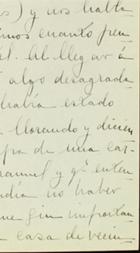 s) y nos habla
mos cuanto pen
él. Al llegar á
algo desagrada
había estado
llorando y dicien
pa de una car
y qe enten
día no haber
que sin importan
casa de vecin